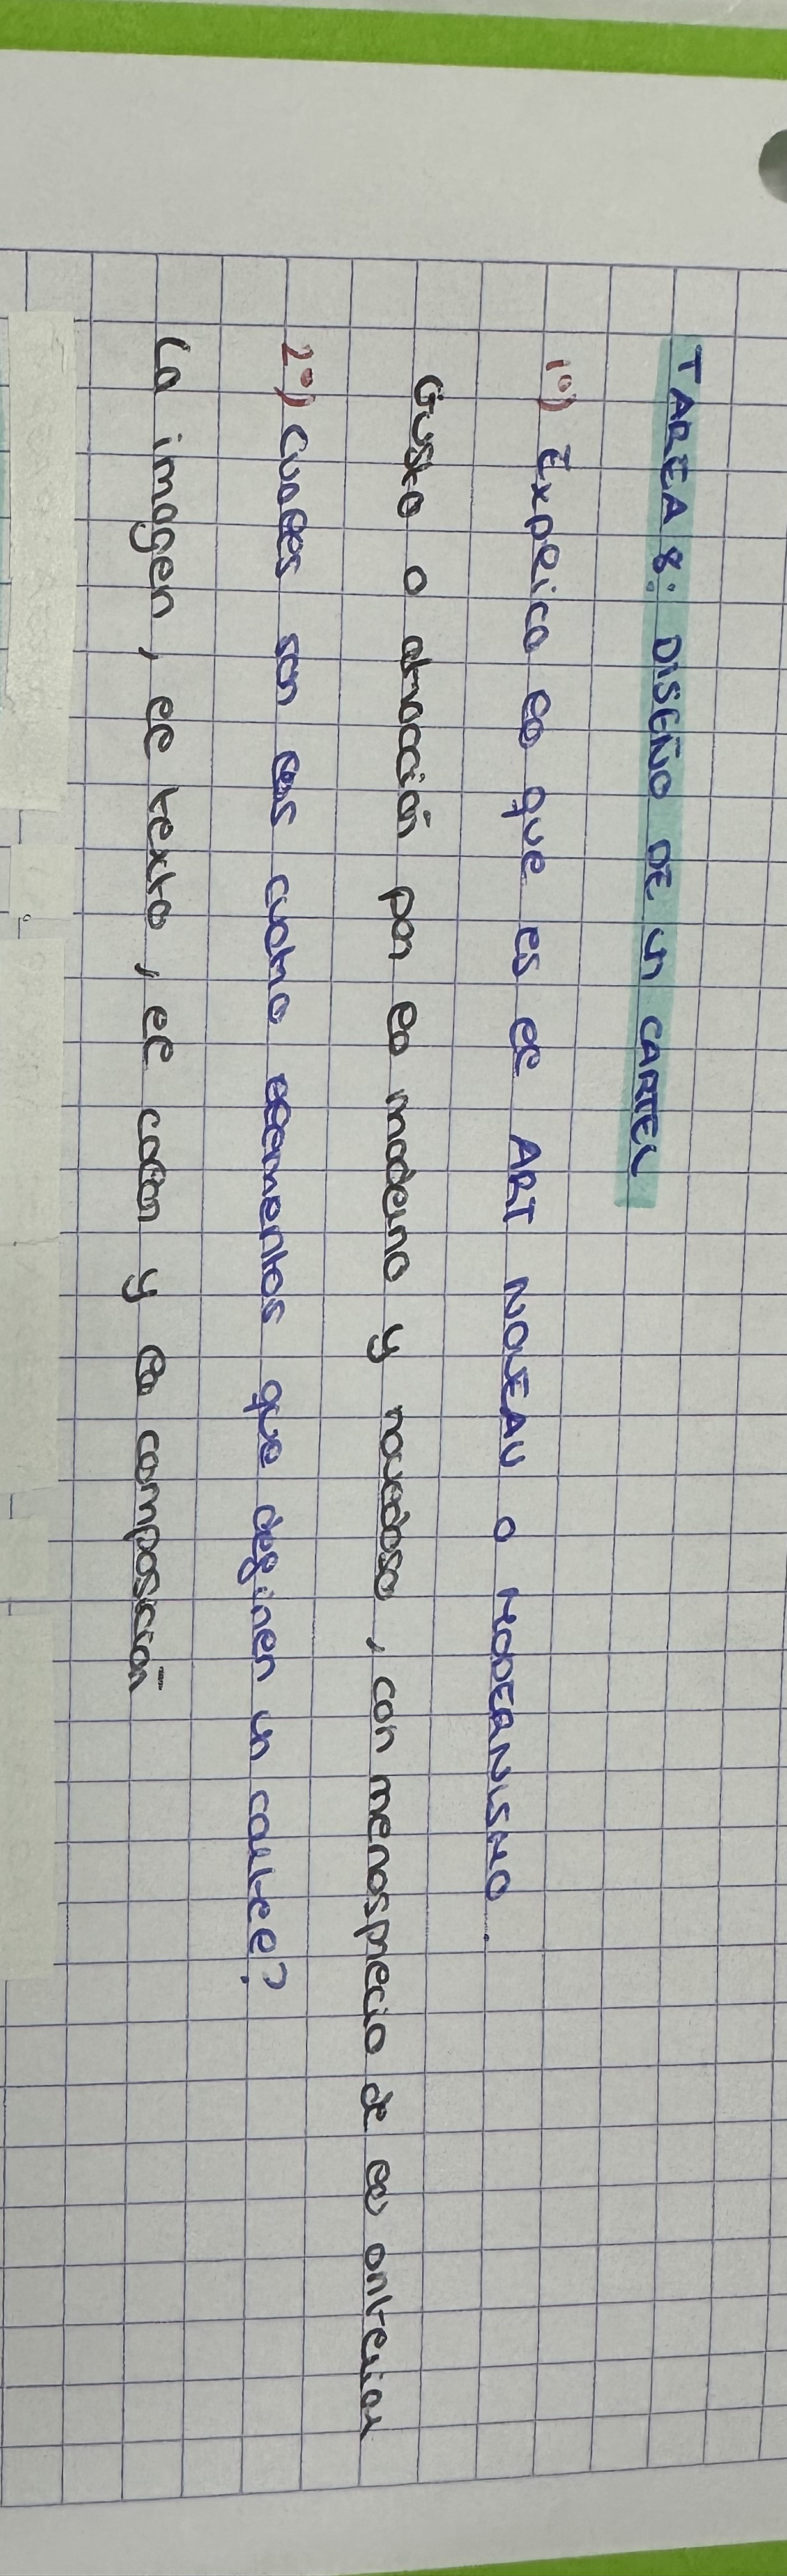 TAREA 8: DISEÑO DE UN CARTEL
1º) Explica lo que es el ART NOUEAU O MODERNISMO.
Gusto o atracción por lo moderno y novedoso, con menosprecio de lo anterior
2º) Cuales son los cuatro elementos que definen un cartel?
La imagen, el texto, el color y la composición